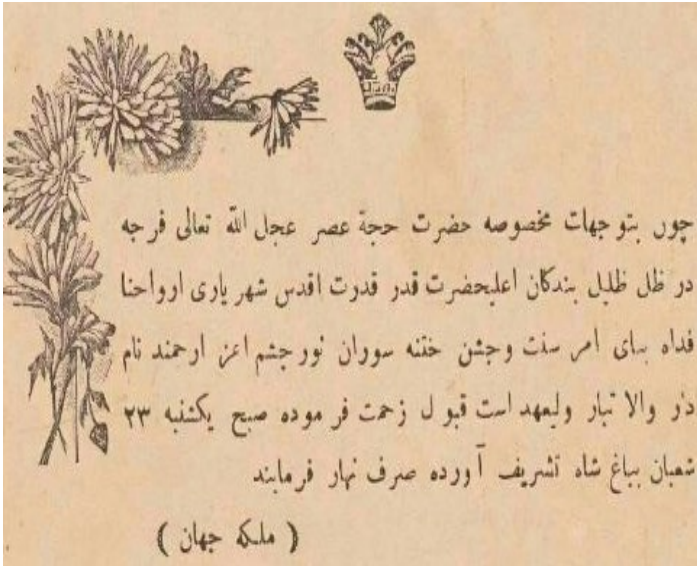 چون بتوجهات مخصوصه حضرت حجة عصر عجل الله تعالی فرجه
در ظل ظلیل بندکان اعلیحضرت قدر قدرت اقدس شهریاری ارواحنا
فداه بنای امر سنت وجشن ختنه سوران نور چشم اعز ارجمند نام
دار والا تبار ولیعهد است قبول زحمت فرموده صبح یکشنبه ۲۳
شعبان بباغ شاه تشریف آورده صرف نهار فرمایند
( ملکه جهان )